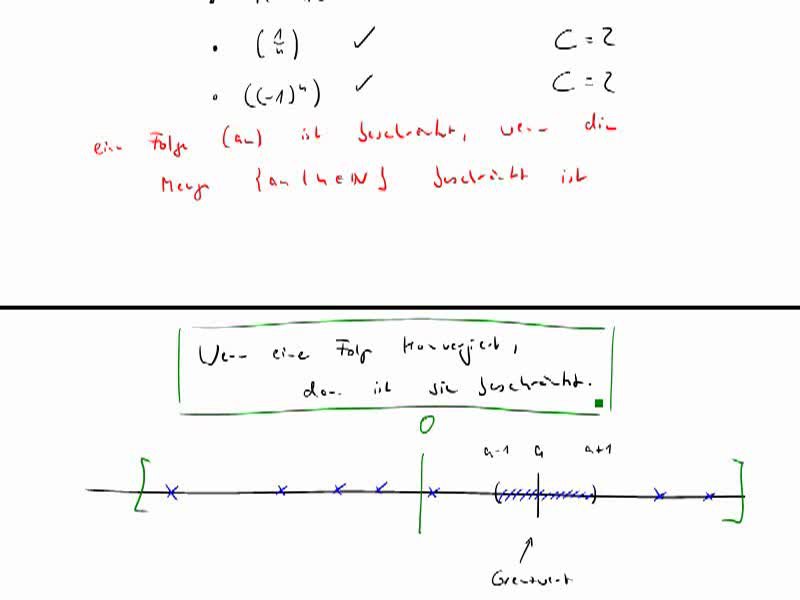 • (1/n) ✓ C = 2
• ((-1)^n) ✓ C = 2
ein Folge (an) ist beschränkt, wenn die
Menge {an | n ∈ ℕ} beschränkt ist
Wenn eine Folge konvergiert,
dann ist sie beschränkt.
0
a-1 a a+1
Grenzwert